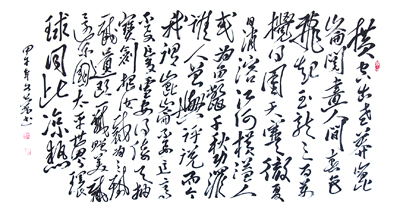 横空出世莽崑
崙阅尽人间春色
飞起玉龙三百万
搅得周天寒彻夏
日消溶江河横溢人
或为鱼鳖千秋功罪
谁人曾与评说而今
我谓崑崙不要这高
不要这多雪安得倚天抽
宝剑把汝裁为三截
一截遗欧一截赠美一截
还东国太平世界环
球同此凉热
甲午年